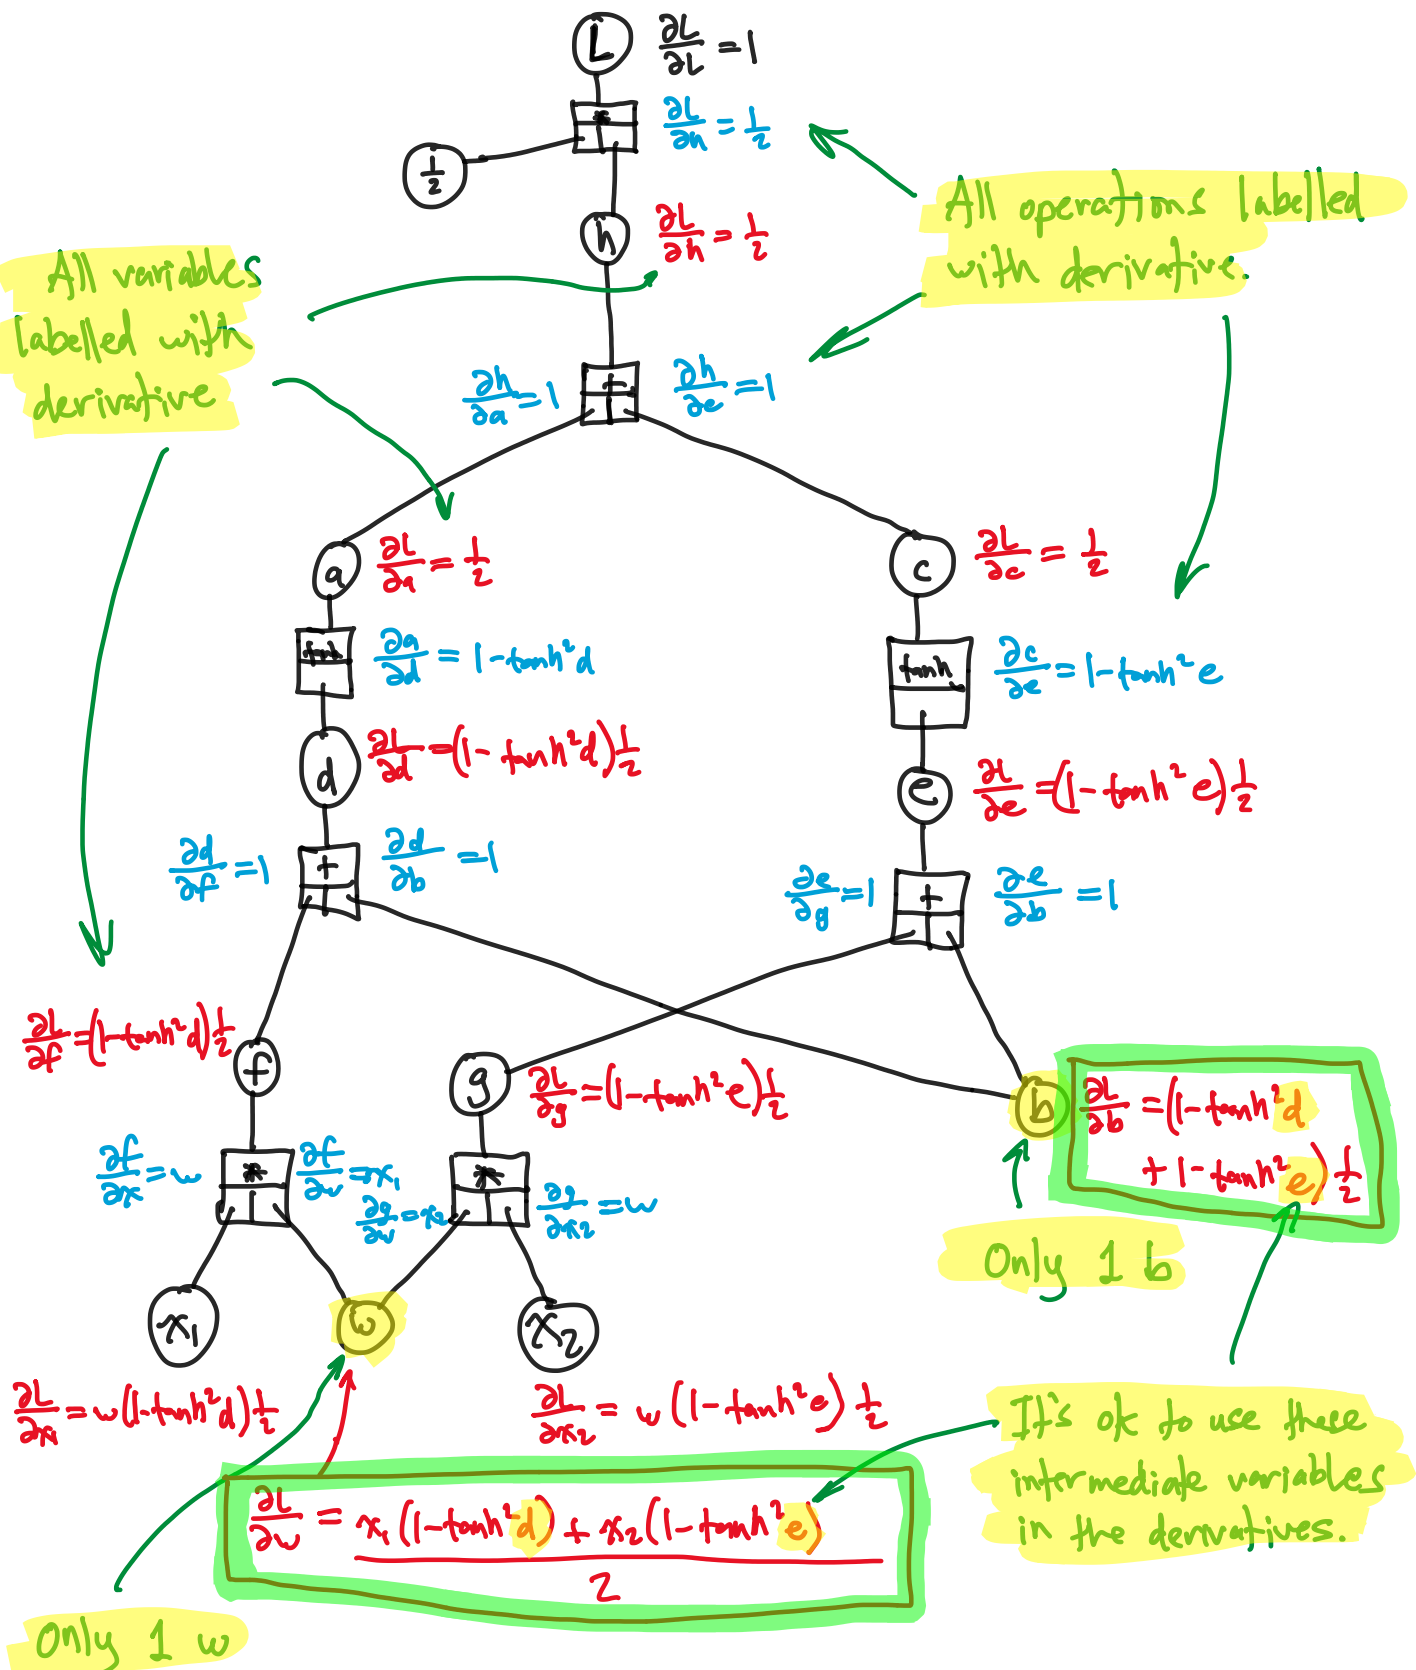 L ∂L/∂L = 1
* ∂L/∂h = 1/2
1/2
All operations labelled
with derivative.
h ∂L/∂h = 1/2
All variables
labelled with
derivative
∂h/∂a = 1 + ∂h/∂e = 1
a ∂L/∂a = 1/2
c ∂L/∂c = 1/2
tanh ∂a/∂d = 1-tanh²d
tanh ∂c/∂e = 1-tanh²e
d ∂L/∂d = (1-tanh²d)1/2
e ∂L/∂e = (1-tanh²e)1/2
∂d/∂f = 1 + ∂d/∂b = 1
∂e/∂g = 1 + ∂e/∂b = 1
∂L/∂f = (1-tanh²d)1/2 f
g ∂L/∂g = (1-tanh²e)1/2
b ∂L/∂b = (1-tanh²d
+ 1-tanh²e)1/2
∂f/∂x = w * ∂f/∂w = x₁
∂g/∂w = x₂ * ∂g/∂x₂ = w
Only 1 b
x₁ w x₂
∂L/∂x₁ = w(1-tanh²d)1/2
∂L/∂x₂ = w(1-tanh²e)1/2
It's ok to use these
intermediate variables
in the derivatives.
∂L/∂w = x₁(1-tanh²d) + x₂(1-tanh²e)
2
Only 1 w